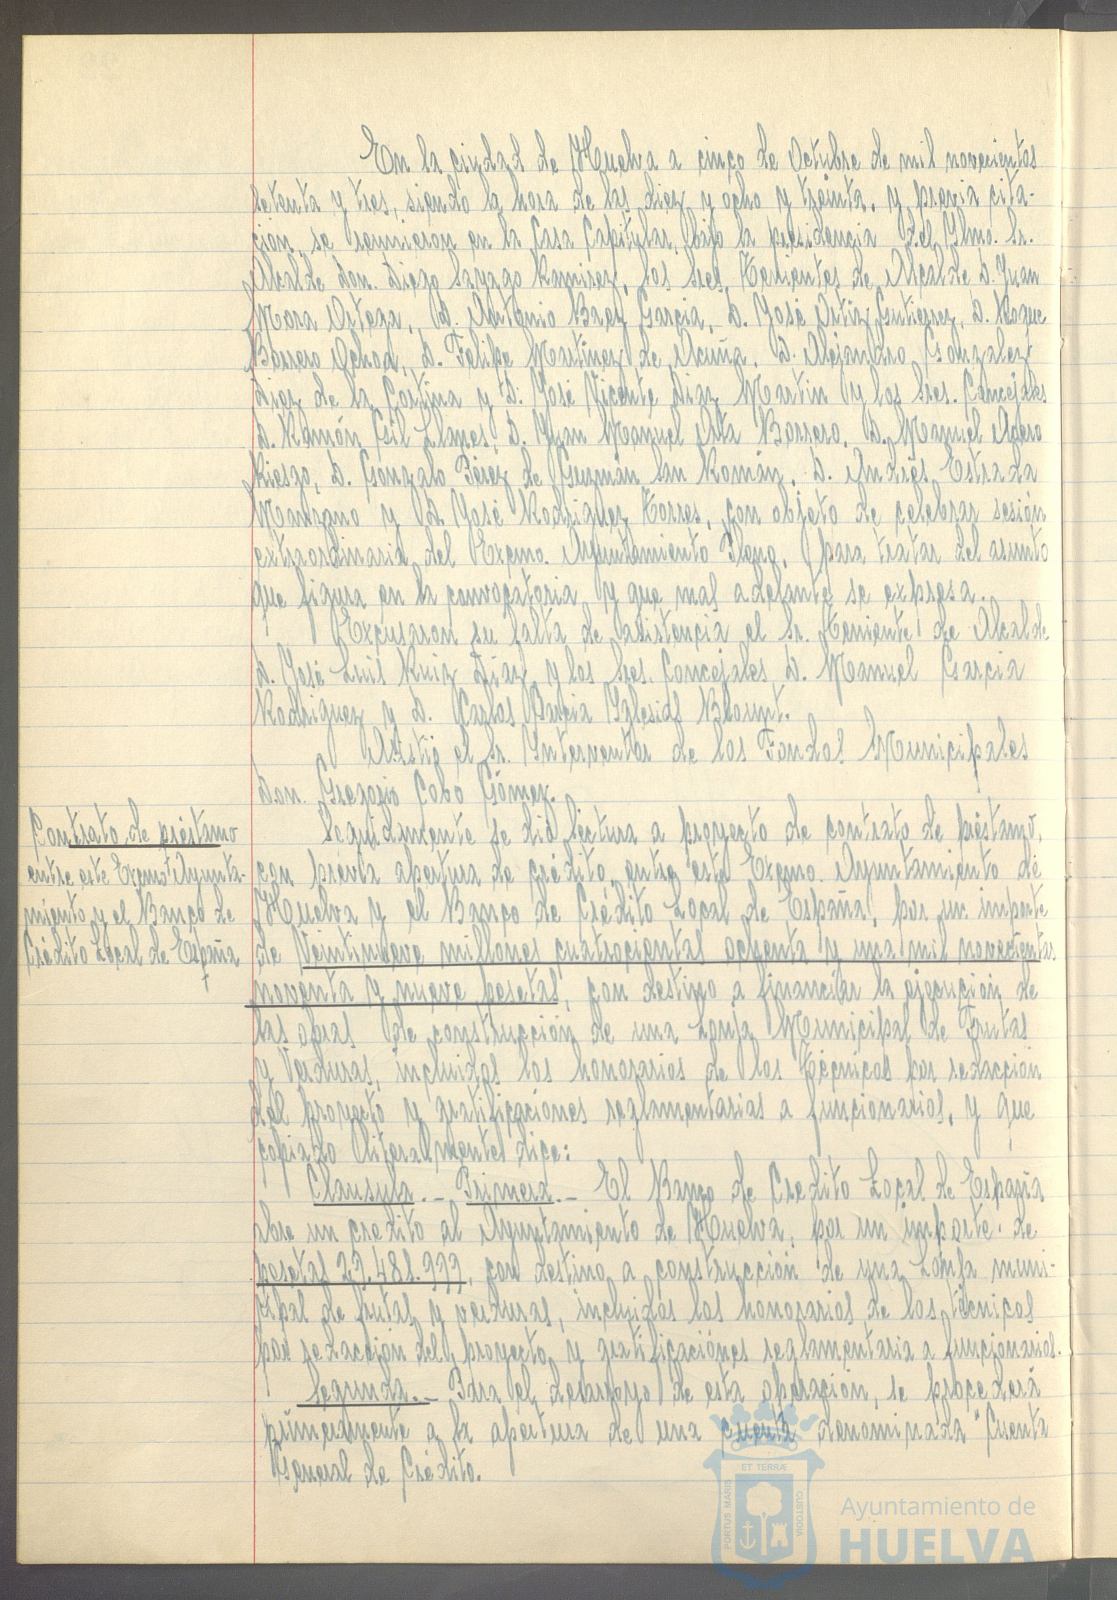 En la ciudad de Huelva a cinco de Octubre de mil novecientos
setenta y tres, siendo la hora de las diez y ocho y treinta, y previa cita-
ción, se reunieron en la Casa Capitular, bajo la presidencia del Ilmo. Sr.
Alcalde Don. Diego Sayago Ramirez, los Sres, Tenientes de Alcalde D. Juan
Mora Ortega, D. Antonio Baez Garcia, D. José Ortiz Gutierrez, D. Roque
Borrero Ochoa, D. Felipe Martinez de Acuña, D. Alejandro Gonzalez
Diez de la Cortina y D. José Vicente Diaz Martin y los Sres. Concejales
D. Ramón Gil Llanes, D. Juan Manuel Alta Borrero, D. Manuel Agero
Riesgo, D. Gonzalo Pérez de Guzmán San Román, D. Andrés Estrada
Manzano y D. José Rodriguez Torres, con objeto de celebrar sesión
extraordinaria del Excmo. Ayuntamiento Pleno, para tratar del asunto
que figura en la convocatoria y que mas adelante se expresa.
Excusaron su falta de asistencia el Sr. Teniente de Alcalde
D. José Luis Ruiz Diaz y los Sres. Concejales D. Manuel Garcia
Rodriguez y D. Carlos Garcia Iglesias Blount.
Asistió el Sr. Interventor de los Fondos Municipales
Don. Gregorio Cobo Gómez.
Contrato de préstamo
entre este Excmo Ayunta-
miento y el Banco de
Crédito Local de España
Seguidamente se dió lectura a proyecto de contrato de préstamo,
con previa apertura de crédito, entre este Excmo. Ayuntamiento de
Huelva y el Banco de Crédito Local de España, por un importe
de Veintinueve millones cuatrocientas ochenta y una mil novecientas
noventa y nueve pesetas, con destino a financiar la ejecución de
las obras de construcción de una Lonja Municipal de Frutas
y Verduras, incluidos los honorarios de los Técnicos por redacción
del proyecto y gratificaciones reglamentarias a funcionarios, y que
copiado literalmente dice:
Clausula.- Primera.- El Banco de Credito Local de España
abre un credito al Ayuntamiento de Huelva, por un importe de
pesetas 29.481.999, con destino a construcción de una Lonja muni-
cipal de frutas y verduras, incluidos los honorarios de los técnicos
por redacción del proyecto y gratificaciónes reglamentaria a funcionarios.
Segunda.- Para el desarroyo de esta operación, se procederá
primeramente a la apertura de una cuenta denominada "Cuenta
General de Crédito.
PORTUS MARIS ET TERRÆ CUSTODIA
Ayuntamiento de
HUELVA